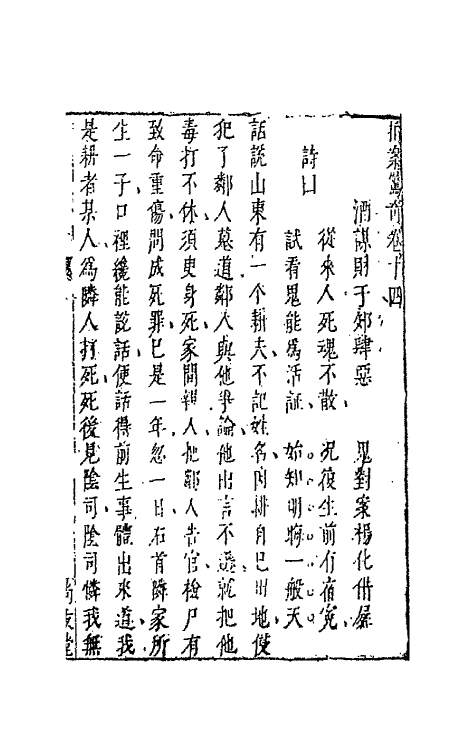 拍案驚奇卷十四
酒謀財于郊肆惡 鬼對案楊化借屍
詩曰
從來人死魂不散 況復生前有宿冤
試看鬼能為活証 始知明晦一般天
話說山東有一个耕夫不記姓名因耕自己田地侵
犯了鄰人墓道鄰人與他爭論他出言不遜就把他
毒打不休須臾身死家間親人把鄰人告官檢尸有
致命重傷問成死罪已是一年忽一日右首鄰家所
生一子口裡纔能說話便話得前生事體出來道我
是耕者某人為鄰人打死死後見陰司陰司憐我無
尚友堂